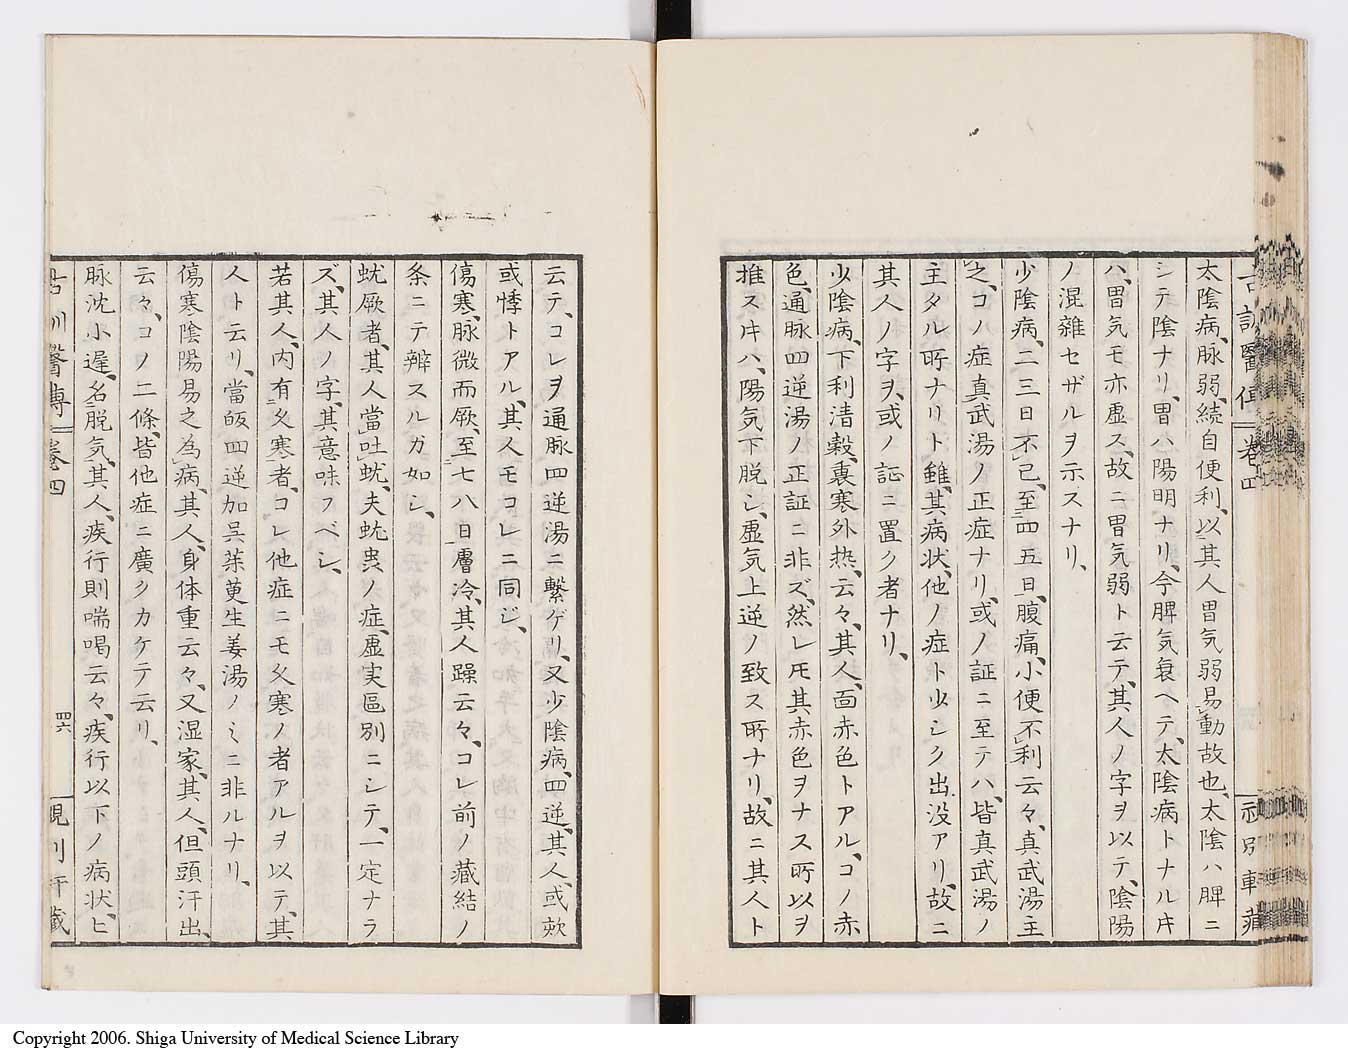 太陰病、脉弱、続自便利、以其人胃気弱易動故也、太陰ハ脾ニ
シテ陰ナリ、胃ハ陽明ナリ、今脾気衰ヘテ、太陰病トナルキ
ハ、胃気モ亦虚ス、故ニ胃気弱ト云テ、其人ノ字ヲ以テ、陰陽
ノ混雑セザルヲ示スナリ、
少陰病、二三日不已、至四五日、腹痛、小便不利云々、真武湯主
之、コハ症真武湯ノ正症ナリ、或ノ証ニ至テハ、皆真武湯ノ
主タル所ナリト雖、其病状、他ノ症ト少シク出没アリ、故ニ
其人ノ字ヲ、或ノ証ニ置ク者ナリ、
少陰病、下利清穀、裏寒外熱、云々、其人、面赤色トアル、コノ赤
色、通脉四逆湯ノ正証ニ非ズ、然レ𪜈其赤色ヲナス所以ヲ
推スキハ、陽気下脱シ、虚気上逆ノ致ス所ナリ、故ニ其人ト
云テ、コレヲ通脉四逆湯ニ繋ゲリ、又少陰病、四逆、其人、或欬
或悸トアル、其人モコレニ同ジ、
傷寒、脉微而厥、至七八日膚冷、其人躁云々、コレ前ノ蔵結ノ
条ニテ辨スルガ如シ、
蚘厥者、其人當吐蚘、夫蚘蟲ノ症、虚実區別ニシテ、一定ナラ
ズ、其人ノ字、其意味フベシ、
若其人、内有久寒者、コレ他症ニモ久寒ノ者アルヲ以テ、其
人ト云リ、當皈四逆加呉茱萸生姜湯ノミニ非ルナリ、
傷寒陰陽易之為病、其人、身体重云々、又湿家、其人、但頭汗出、
云々、コノ二條、皆他症ニ廣クカケテ云リ、
脉沈小遅、名脱気、其人、疾行則喘喝云々、疾行以下ノ病状、ヒ
醫傳 卷四
四六